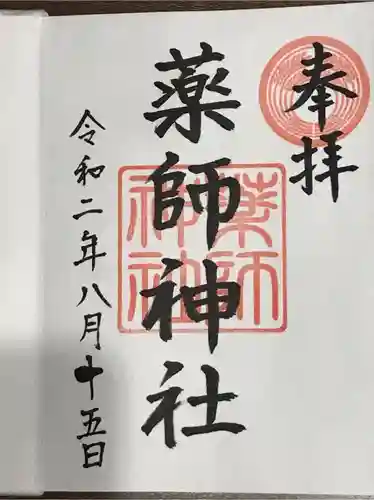 奉拝
薬師神社
薬師
神社
令和二年八月十五日